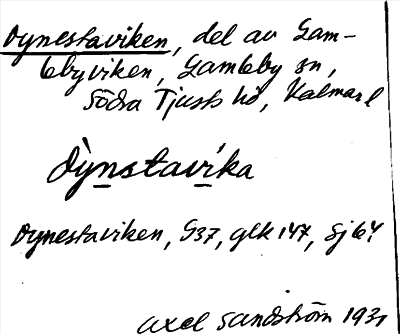 Dynestaviken, del av Gam-
lebyviken, Gamleby sn,
Södra Tjusts hd, Kalmar l
dy̍nstavi̍ka
Dynestaviken, G37, glk 147, Sjk 64
Axel Sandström 1931